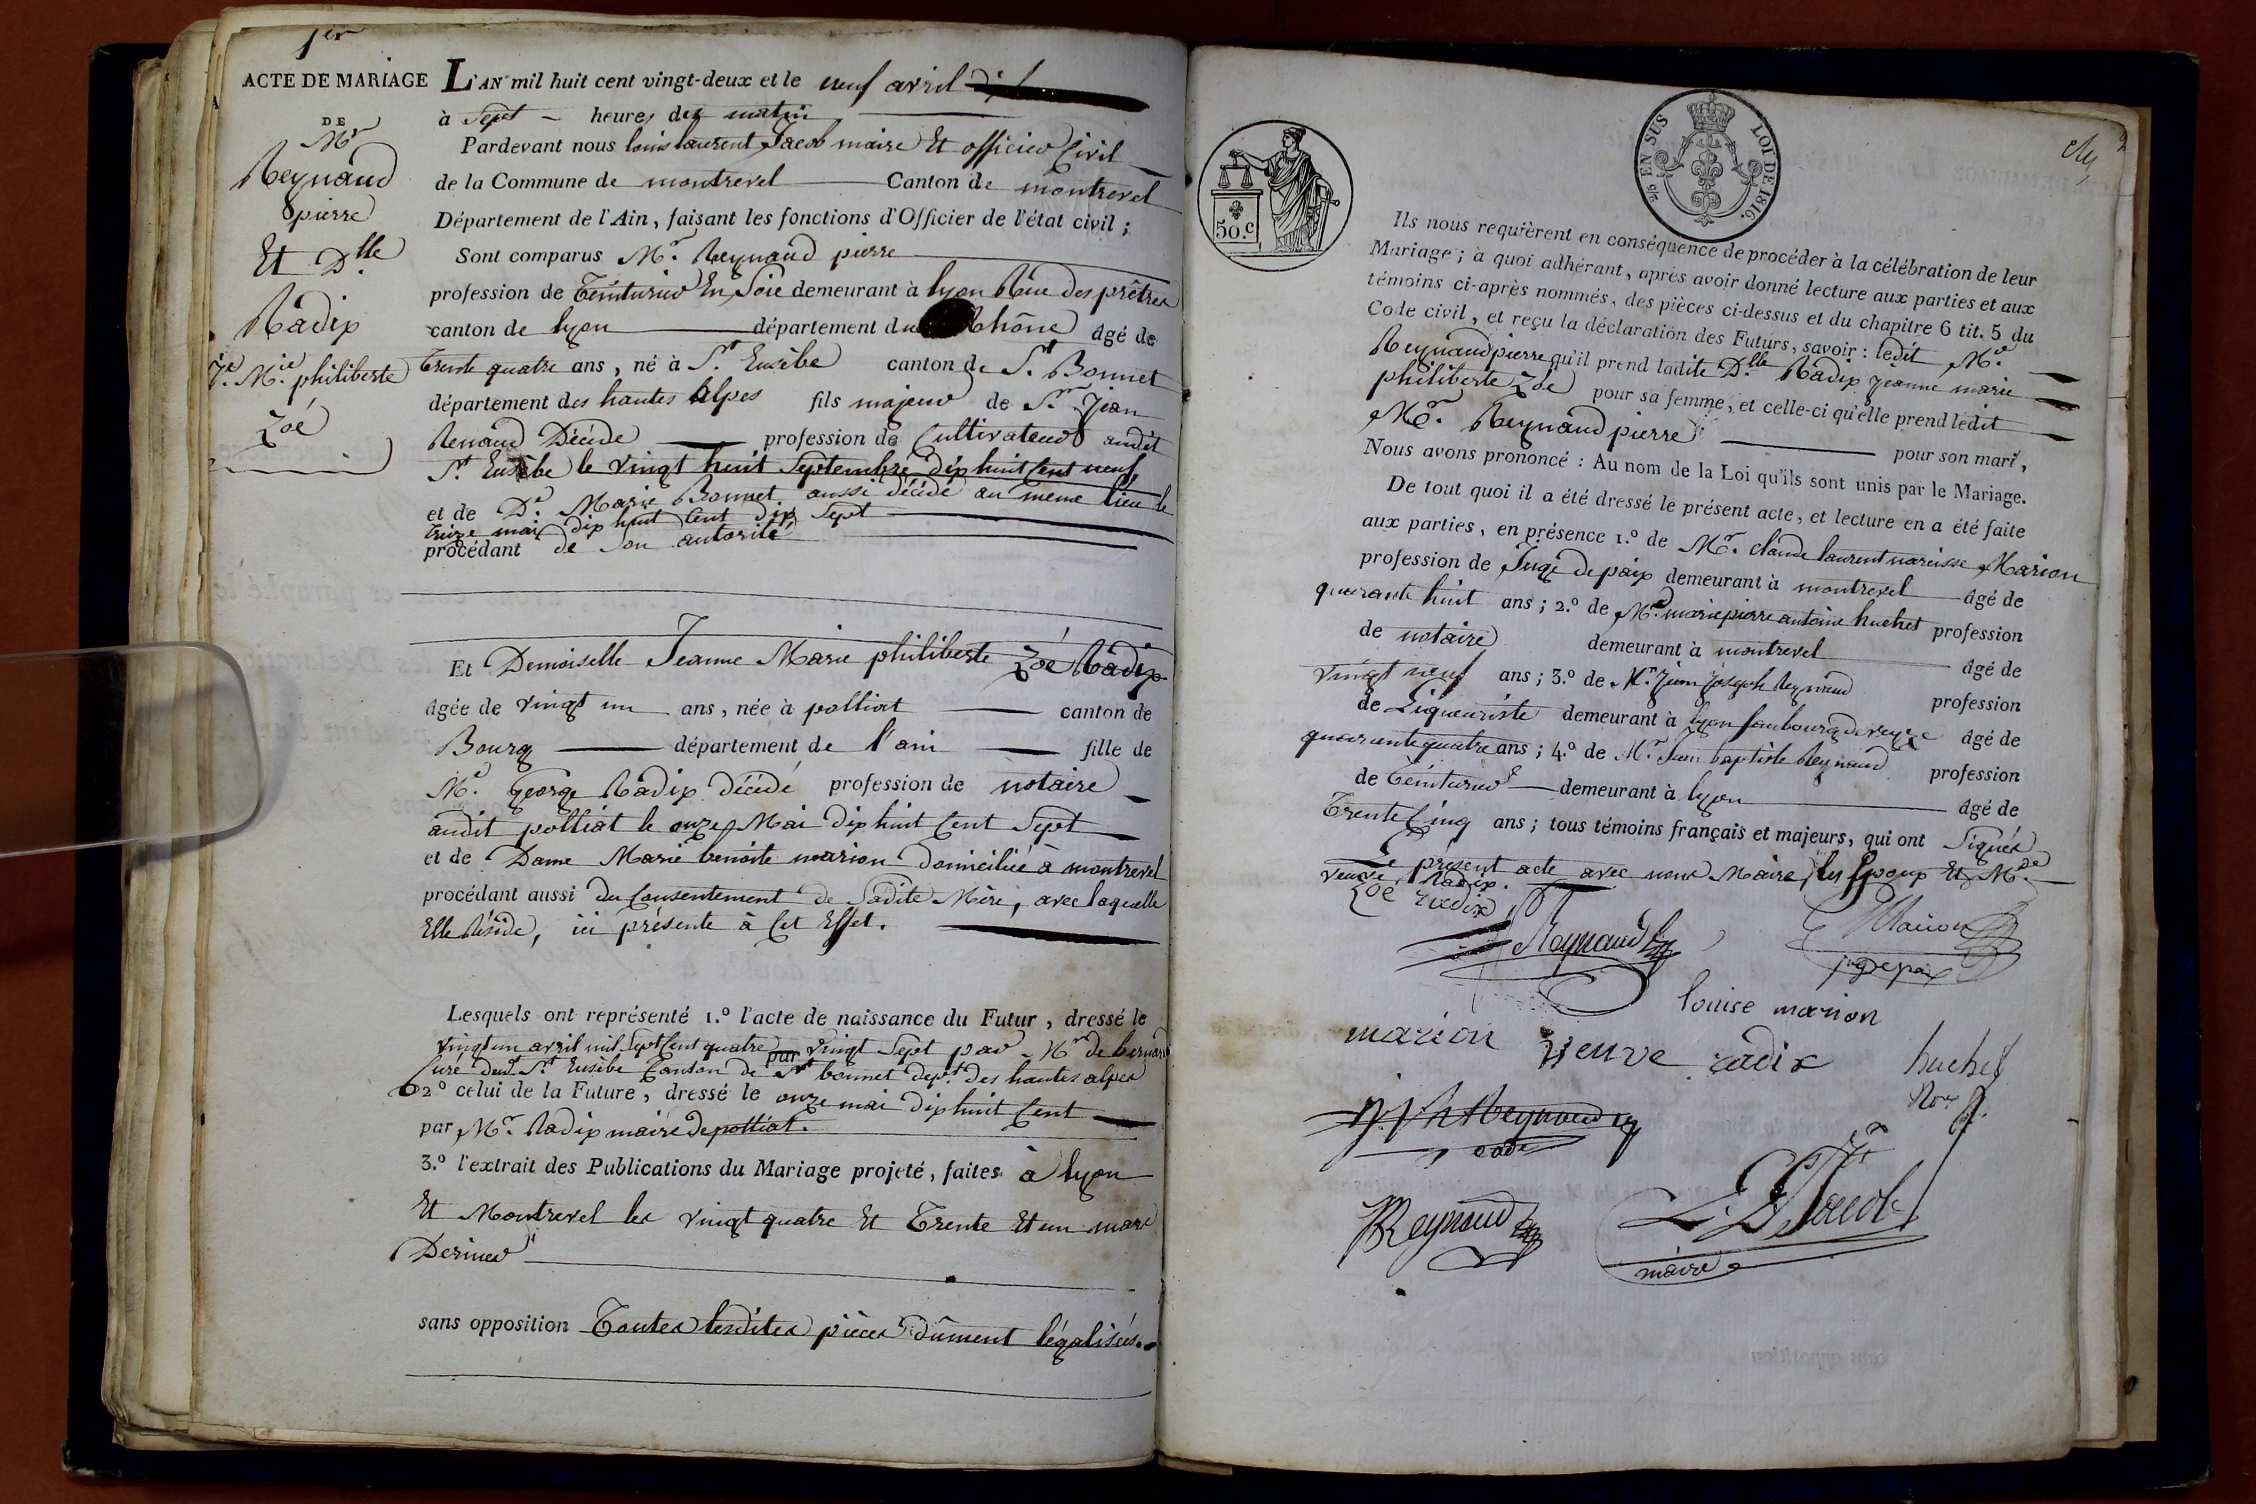 1er
ACTE DE MARIAGE
DE
Mr
Reynaud
pierre
Et Dlle
Radix
Je. Mie philiberte
Zoé
L'AN mil huit cent vingt-deux et le neuf avril
à Sept heures du matin
Pardevant nous louis laurent Jacob maire Et officier Civil
de la Commune de montrevel Canton de montrevel
Département de l'Ain, faisant les fonctions d'Officier de l'état civil ;
Sont comparus Mr. Reynaud pierre
profession de Teinturier En Soie demeurant à lyon Rue des prêtres
canton de lyon département du Rhône âgé de
trente quatre ans, né à St. Eusèbe canton de St. Bonnet
département des hautes Alpes fils majeur de Sr. Jean
Renaud Décédé profession de Cultivateur audit
St. Eusèbe le vingt huit Septembre dix huit Cent neuf
et de De. Marie Bonnet aussi décédé au même lieu le
treize mai dix huit Cent dix Sept
procédant de Son autorité
Et Demoiselle Jeanne Marie philiberte Zoé Radix
âgée de vingt un ans, née à polliat canton de
Bourg département de l'ain fille de
Mr. George Radix décédé profession de notaire
audit polliat le onze Mai dix huit Cent Sept
et de Dame Marie benoite marion domiciliée à montrevel
procédant aussi du Consentement de Sadite Mère, avec laquelle
Elle Réside, ici présente à Cet Effet.
Lesquels ont représenté 1.º l'acte de naissance du Futur, dressé le
vingt un avril mil Sept Cent quatre vingt Sept par Mr de bernard
Curé dudt. St. Eusèbe Canton de St bonnet dept. des hautes alpes
2º celui de la Future, dressé le onze mai dix huit Cent
par Mr. Radix maire de polliat.
3.º l'extrait des Publications du Mariage projeté, faites à lyon
Et Montrevel les vingt quatre Et Trente Et un mars
Dernier
sans opposition Toutes lesdites pièces dûment légalisées.
50.c
2/5 EN SUS
LOI DE 1816.
Ils nous requièrent en conséquence de procéder à la célébration de leur
Mariage ; à quoi adhérant, après avoir donné lecture aux parties et aux
témoins ci-après nommés, des pièces ci-dessus et du chapitre 6 tit. 5 du
Code civil, et reçu la déclaration des Futurs, savoir : ledit Mr.
Reynaud pierre qu'il prend ladite Dlle Radix jeanne marie
philiberte Zoé pour sa femme, et celle-ci qu'elle prend ledit
Mr. Reynaud pierre pour son mari,
Nous avons prononcé : Au nom de la Loi qu'ils sont unis par le Mariage.
De tout quoi il a été dressé le présent acte, et lecture en a été faite
aux parties, en présence 1.º de Mr. claude laurent narcisse Marion
profession de Juge de paix demeurant à montrevel âgé de
quarante huit ans ; 2.º de Mr. marie pierre antoine huchet profession
de notaire demeurant à montrevel âgé de
vingt neuf ans ; 3.º de Mr. jean joseph Reynaud profession
de Liqueuriste demeurant à lyon faubourg de veyze âgé de
quarante quatre ans ; 4.º de Mr. Jean baptiste Reynaud profession
de Teinturier demeurant à lyon âgé de
Trente Cinq ans ; tous témoins français et majeurs, qui ont Signés
Le présent acte avec nous Maire, les Epoux Et Mde
veuve Radix.
Zoé radix
Reynaud
Marion
juge de paix
louise marion
marion veuve radix
huchet
Not
Reynaud
cadt
JB Reynaud
L. L. Jacob
maire